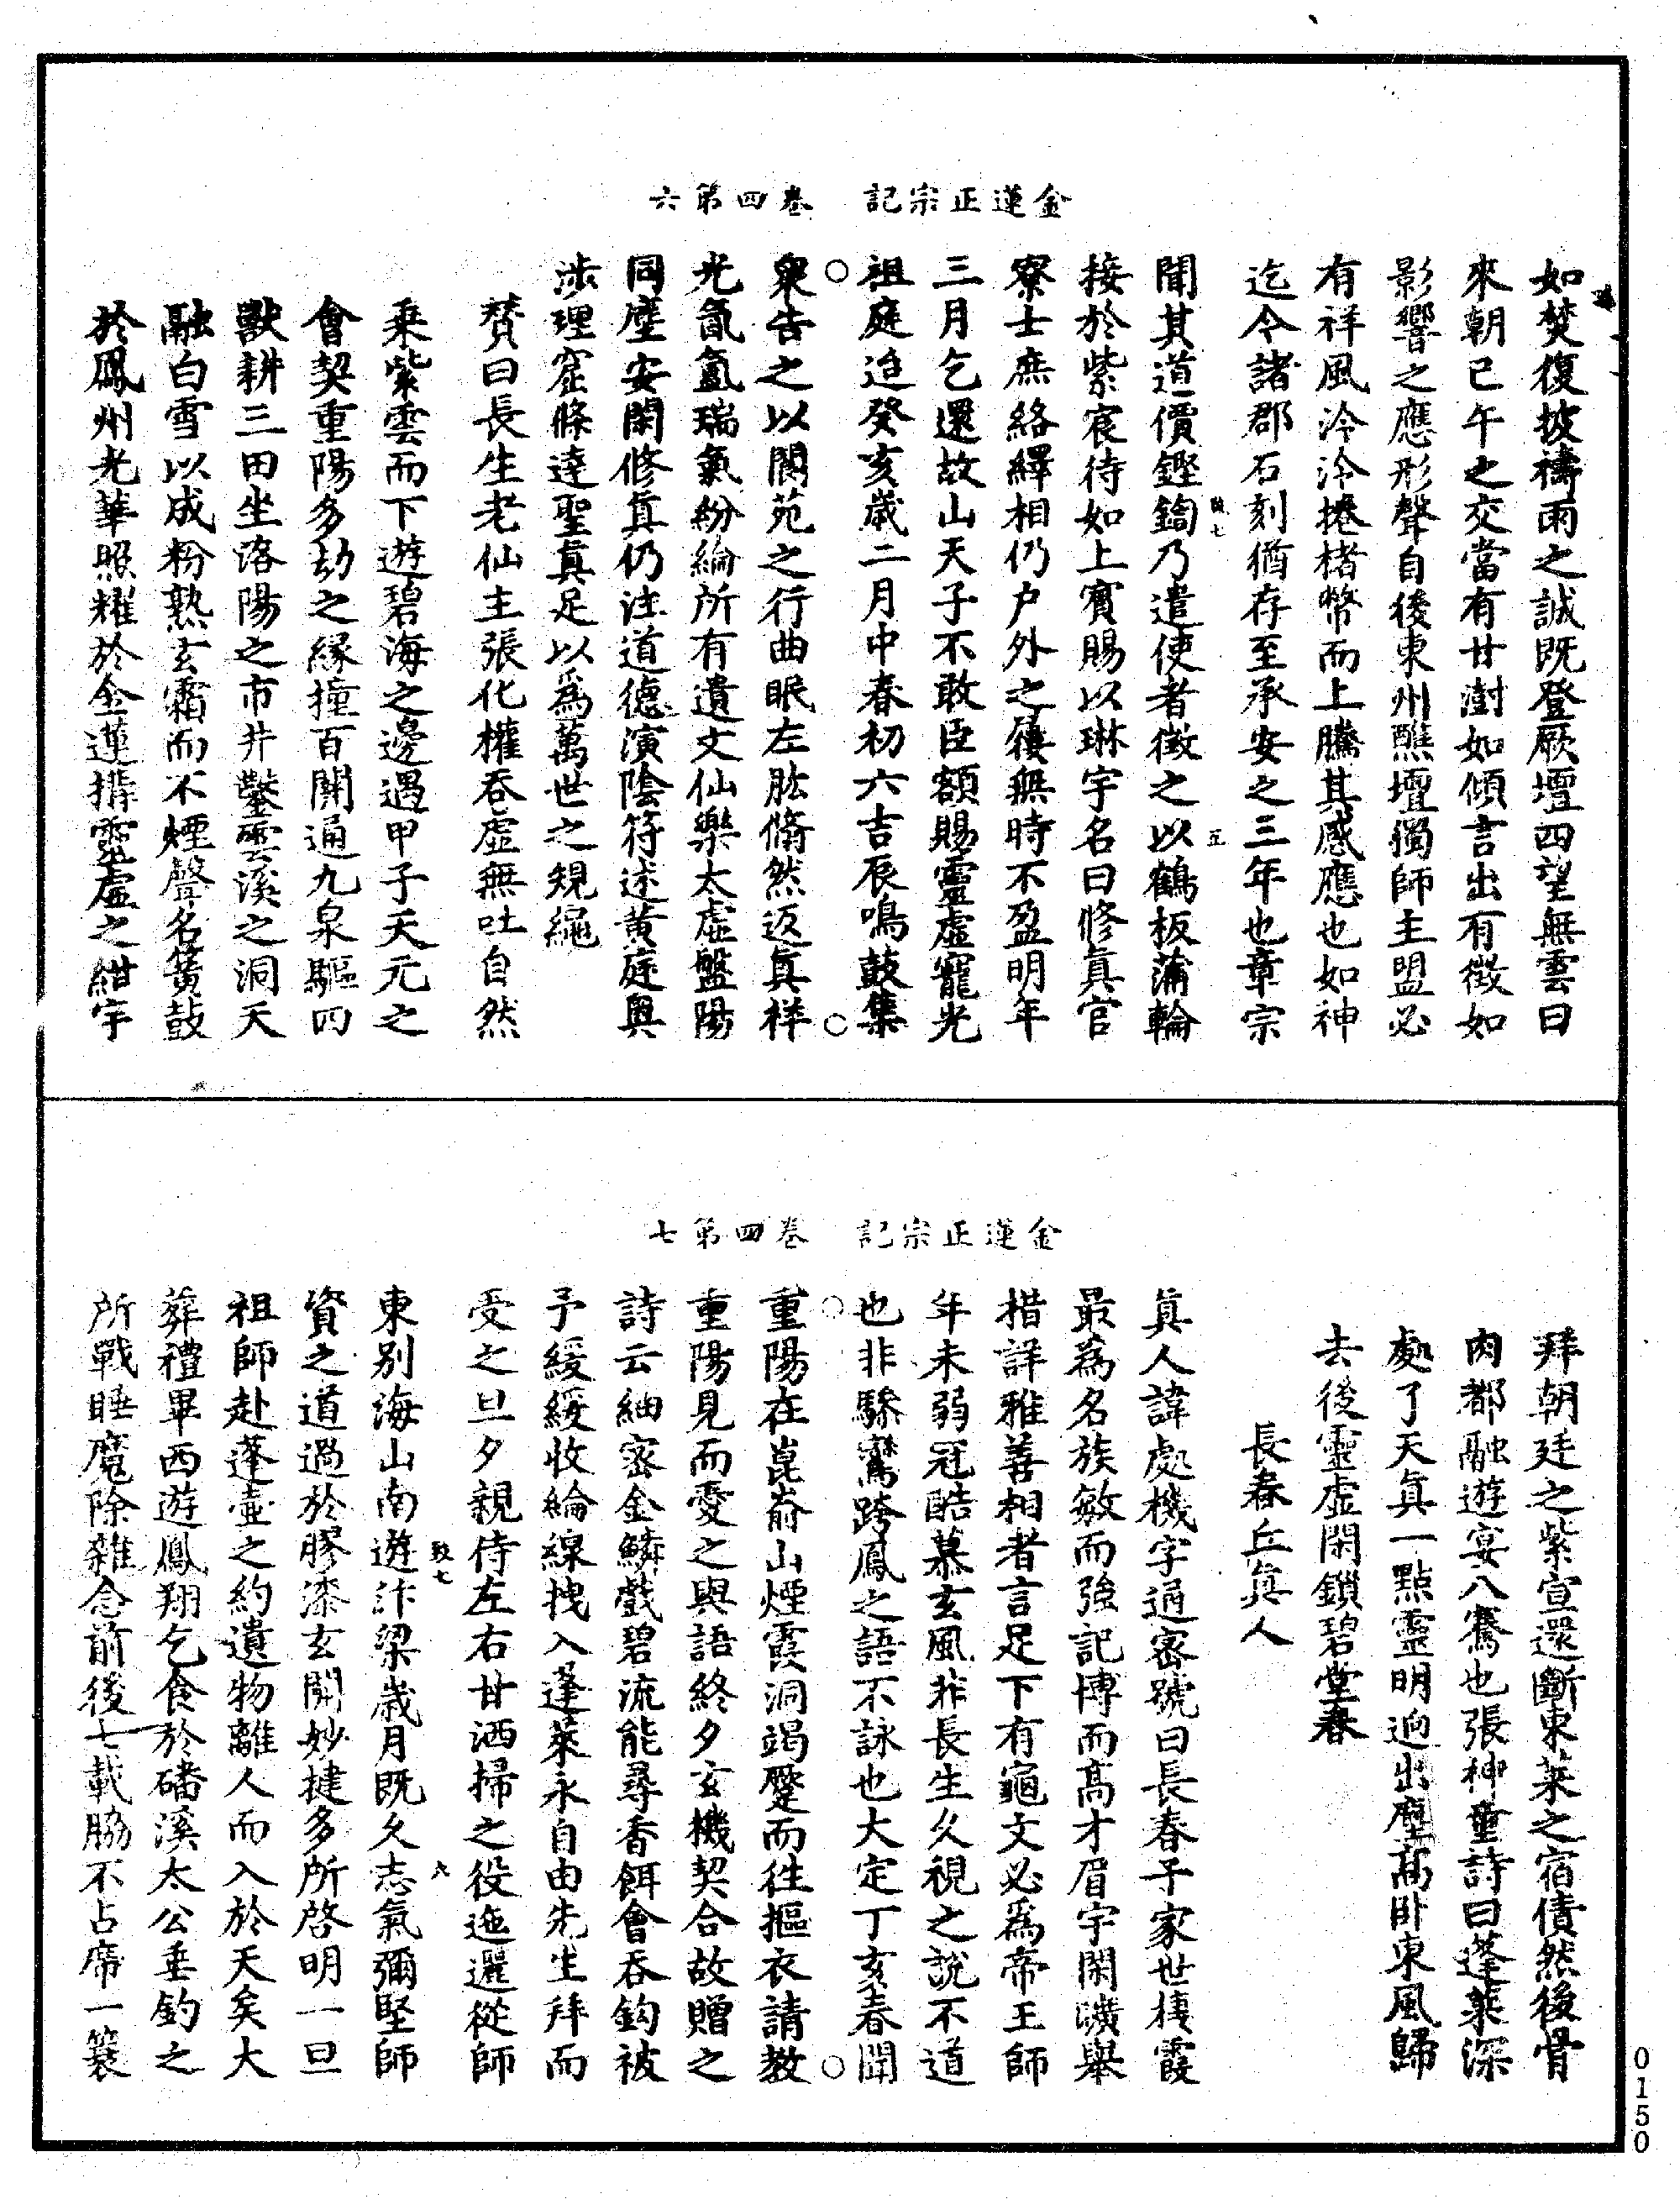 金蓮正宗記　卷四第六
如焚復披禱雨之誠既登厥壇四望無雲曰
來朝已午之交當有甘澍如傾言出有徵如
影響之應形聲自後東州醮壇獨師主盟必
有祥風泠泠捲楮幣而上騰其感應也如神
迄今諸郡石刻猶存至承安之三年也章宗
聞其道價鏗鍧乃遣使者徵之以鶴板蒲輪
接於紫宸待如上賓賜以琳宇名曰修眞官
寮士庶絡繹相仍户外之屨無時不盈明年
三月乞還故山天子不敢臣額賜靈虛寵光
祖庭迨癸亥歲二月中春初六吉辰鳴鼓集
衆告之以閬苑之行曲眠左肱翛然返眞祥
光氤氳瑞氣紛綸所有遺文仙樂太虛盤陽
同塵安閑修眞仍注道德演陰符述黃庭奧
涉理窟條達聖眞足以爲萬世之規繩
贊曰長生老仙主張化權吞虛無吐自然
乘紫雲而下遊碧海之邊遇甲子天元之
會契重陽多劫之緣撞百關通九泉驅四
獸耕三田坐洛陽之市井鑿雲溪之洞天
融白雪以成粉熟玄霜而不煙聲名簧鼓
於鳳州光華照耀於金蓮揹靈虛之紺宇
致七
五
金蓮正宗記　卷四第七
拜朝廷之紫宣還斷東萊之宿債然後骨
肉都融遊宴八騫也張神童詩曰蓬萊深
處了天眞一點靈明逈出塵高卧東風歸
去後靈虛閑鎖碧堂春
長春丘眞人
眞人諱處機字通密號曰長春子家世棲霞
最爲名族敏而強記博而高才眉宇閑曠舉
措詳雅善相者言足下有龜文必爲帝王師
年未弱冠酷慕玄風非長生久視之說不道
也非驂鸞跨鳳之語不詠也大定丁亥春聞
重陽在崑嵛山煙霞洞竭蹷而徃摳衣請教
重陽見而愛之與語終夕玄機契合故贈之
詩云細密金鱗戲碧流能尋香餌會吞鈎被
予緩緩收綸線拽入蓬萊永自由先生拜而
受之旦夕親侍左右甘洒掃之役迤邐從師
東别海山南遊汴梁歲月既久志氣彌堅師
資之道過於膠漆玄關妙捷多所啓明一旦
祖師赴蓬壺之約遺物離人而入於天矣大
葬禮畢西遊鳳翔乞食於磻溪太公垂釣之
所戰睡魔除雜念前後七載脇不占席一簑
致七
六
0150